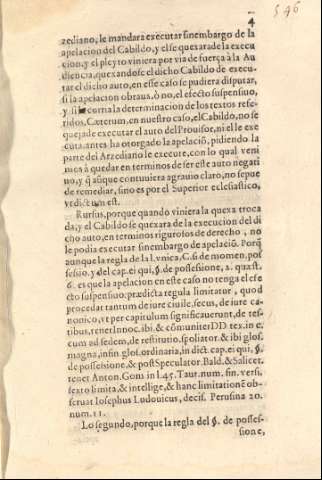 546
4
zediano, le mandara executar sinembargo de la
apelacion del Cabildo, y esse quexarade la execu
cion, y el pleyto viniera por via de fuerça à la Au
diencia, quexandose el dicho Cabildo de execu-
tar el dicho auto, en esse caso se pudiera disputar,
si la apelacion obraua, ò no, el efecto suspensiuo,
y si corria la determinacion de los textos refe-
ridos, Cæterum, en nuestro caso, el Cabildo, no se
quejade executar el auto del Prouisor, ni el le exe
cuta, antes ha otorgado la apelaciõ, pidiendo la
parte del Arzediano le execute, con lo qual veni
mos à quedar en terminos de ser este auto negati
uo, y q̃ aũque contuuiera agrauio claro, no sepue
de remediar, sino es por el Superior eclesiastico,
vt dictum est.
Rursus, porque quando viniera la quexa troca
da, y el Cabildo se quexara de la execucion del di
cho auto, en terminos rigurosos de derecho, no
le podia executar sinembargo de apelaciõ. Porq̃
aunque la regla de la l. vnica, C. si de momen. pos
sessio. y del cap. ei qui, §. de possessione, 2. quæst.
6. es que la apelacion en este caso no tenga el efe
cto suspensiuo prædicta regula limitatur, quod
procedat tantum de iure ciuile, secus, de iure ca-
nonico, vt per capitulum significauerunt, de tes-
tibus, tener Innoc. ibi. & cõmuniter DD tex. in c.
cum ad sedem, de restitutio. spoliator. & ibi glos.
magna, in fin. glos. ordinaria, in dict. cap. ei qui, §.
de possessione, & post Speculator. Bald. & Salicet.
tener Anton. Gom in l. 45. Taur. num. fin. versi.
sexto limita, & intellige, & hanc limitationẽ ob-
seruat Iosephus Ludouicus, decis. Perusina 20.
num. 11.
Lo segundo, porque la regla del §. de posses-
sione,